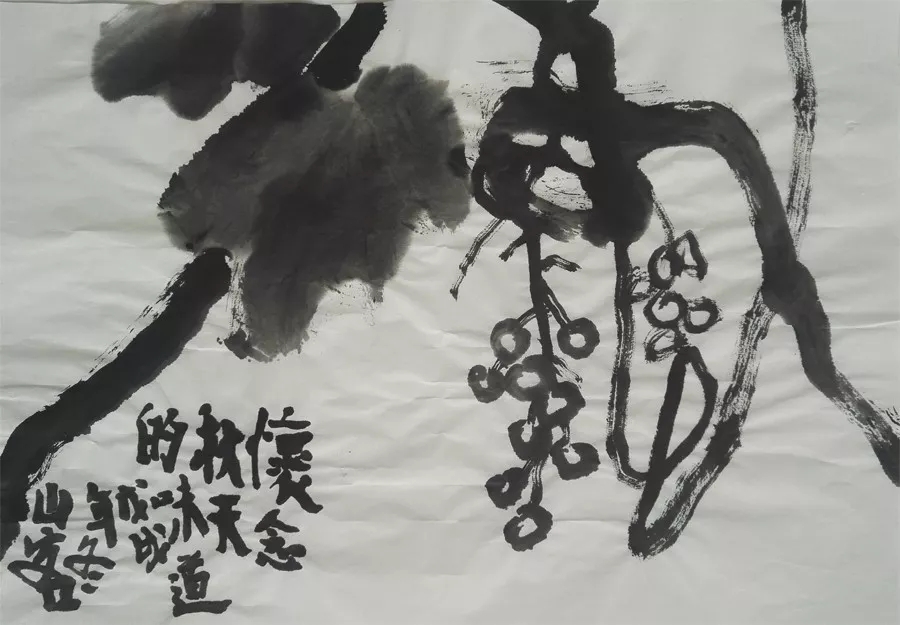 懷念
秋天
的味道
戊戌
年冬
山客